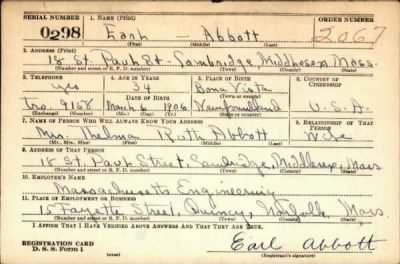 SERIAL NUMBER 1. NAME (Print) ORDER NUMBER
0298 Earl — Abbott 2067
(First) (Middle) (Last)
2. ADDRESS (Print)
18 St. Paul St - Cambridge, Middlesex, Mass.
(Number and street or R. F. D. number) (Town) (County) (State)
3. TELEPHONE 4. AGE IN YEARS 5. PLACE OF BIRTH 6. COUNTRY OF CITIZENSHIP
Yes 34 Bona Vista
DATE OF BIRTH
Tro. 9168 March 6 1906 Newfoundland U.S.A.
(Exchange) (Number) (Mo.) (Day) (Yr.) (State or country)
7. NAME OF PERSON WHO WILL ALWAYS KNOW YOUR ADDRESS 8. RELATIONSHIP OF THAT PERSON
Mrs. Thelma Ruth Abbott Wife
(Mr., Mrs., Miss) (First) (Middle) (Last)
9. ADDRESS OF THAT PERSON
18 St. Paul Street, Cambridge, Middlesex, Mass
(Number and street or R. F. D. number) (Town) (County) (State)
10. EMPLOYER'S NAME
Massachusetts Engineering
11. PLACE OF EMPLOYMENT OR BUSINESS
15 Fayette Street, Quincy, Norfolk, Mass.
(Number and street or R. F. D. number) (Town) (County) (State)
I AFFIRM THAT I HAVE VERIFIED ABOVE ANSWERS AND THAT THEY ARE TRUE.
REGISTRATION CARD Earl Abbott
D. S. S. Form 1 (over) (Registrant's signature)